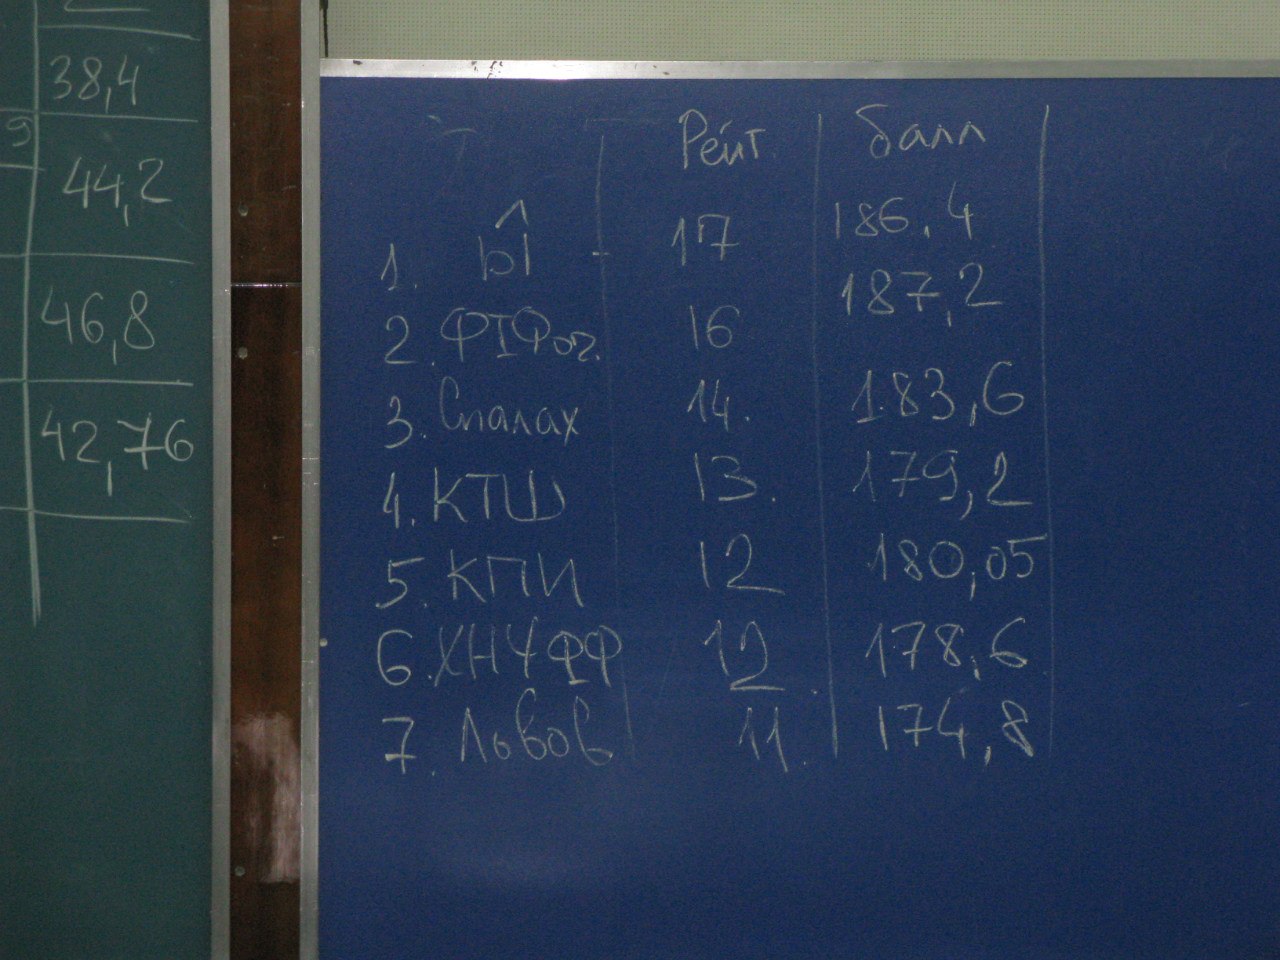 38,4
9
44,2
46,8
42,76
Рейт. балл
1. Ы̂ - 17 186,4
2. ФІФог. 16 187,2
3. Спалах 14. 183,6
4. КТШ 13. 179,2
5. КПИ 12 180,05
6. ХНУФФ 12 178,6
7. Львов 11. 174,8